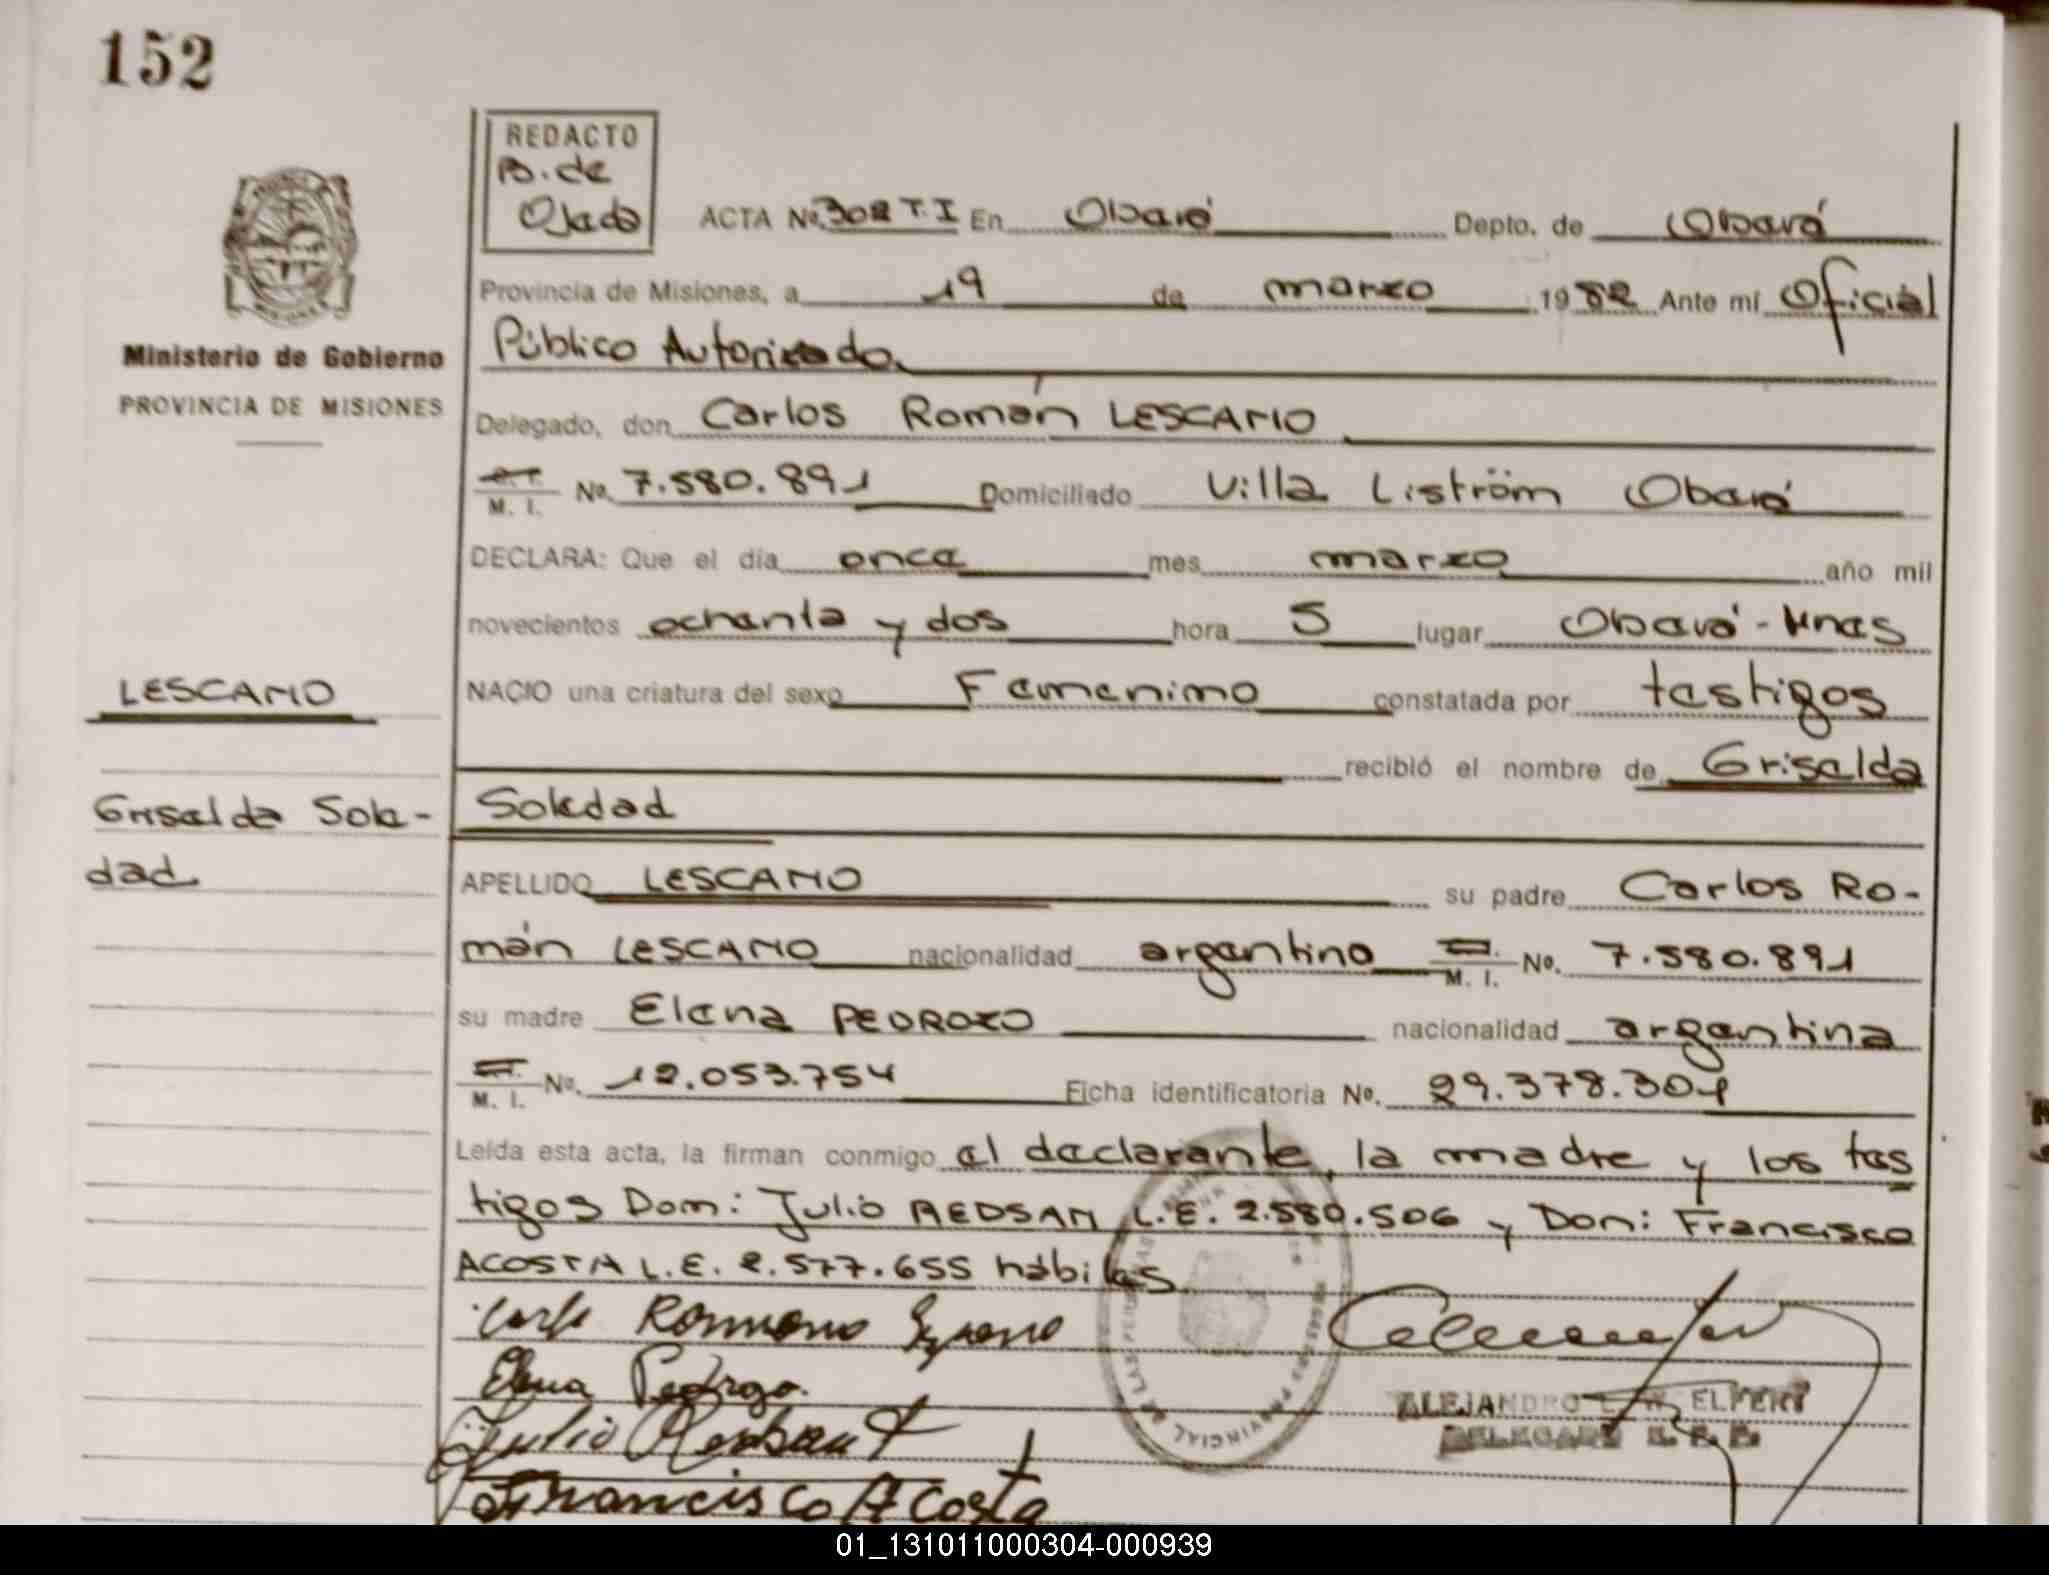 152
REDACTO
B. de
Ojeda
ACTA Nº 302 T.I En Oberá Depto. de Oberá
Provincia de Misiones, a 19 de marzo 1982 Ante mí Oficial
Público Autorizado
Ministerio de Gobierno
PROVINCIA DE MISIONES
Delegado, don Carlos Román LESCANO
M. I. No. 7.580.891 Domiciliado Villa Liström Oberá
DECLARA: Que el día once mes marzo año mil
novecientos ochenta y dos hora 5 lugar Oberá - Mnes
LESCANO
NACIO una criatura del sexo Femenino constatada por testigos
recibió el nombre de Griselda
Griselda Sole-
dad
Soledad
APELLIDO LESCANO su padre Carlos Ro-
mán LESCANO nacionalidad argentino M. I. No. 7.580.891
su madre Elena PEDROZO nacionalidad argentina
M. I. No. 12.053.754 Ficha identificatoria No. 29.378.304
Leída esta acta, la firman conmigo el declarante, la madre y los tes
tigos Don: Julio L.E. 2.580.506 y Don: Francisco
ACOSTA L.E. 2.577.655 hábiles
Elena Pedrozo.
Julio
Francisco Acosta
ALEJANDRO
DELEGADO
01_131011000304-000939